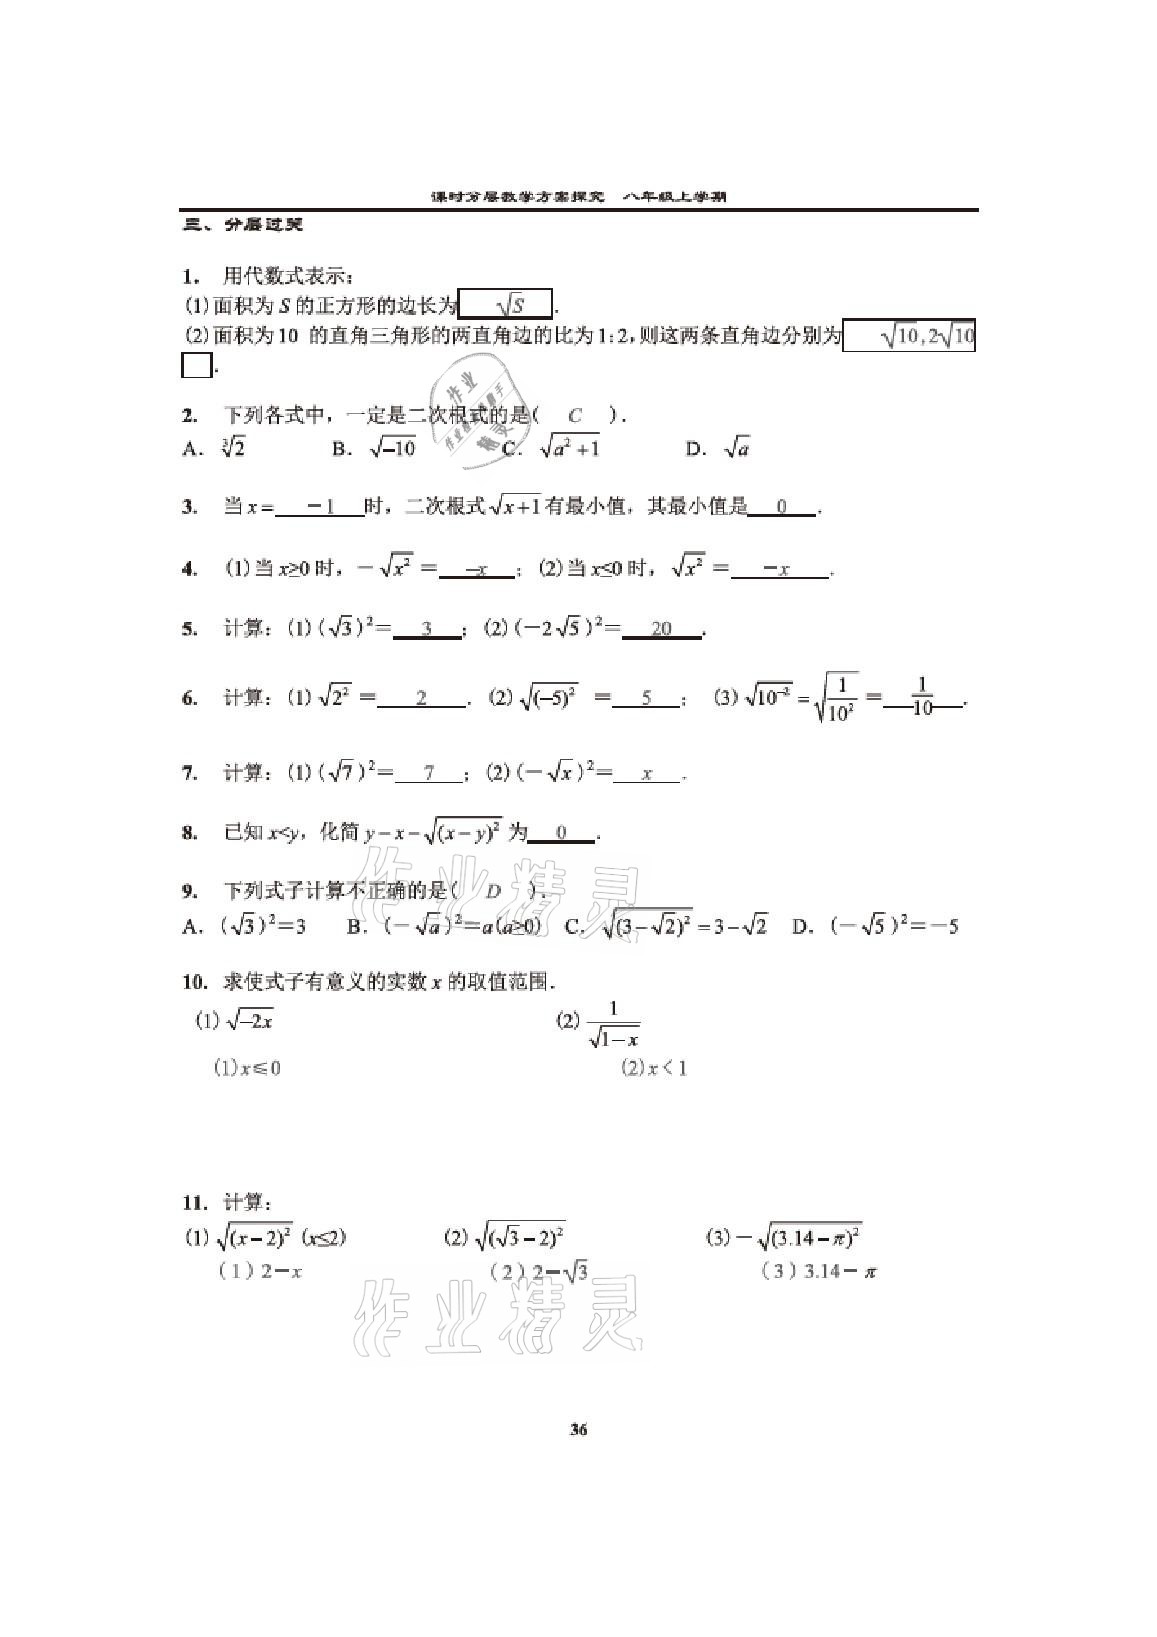 课时分层教学方案探究 八年级上学期
三、分层过关
1. 用代数式表示:
(1)面积为 S 的正方形的边长为 √S .
(2)面积为 10 的直角三角形的两直角边的比为 1:2,则这两条直角边分别为 √10,2√10
.
2. 下列各式中，一定是二次根式的是( C ).
A. ∛2 B. √(-10) C. √(a²+1) D. √a
3. 当 x= -1 时，二次根式√(x+1)有最小值，其最小值是 0 .
4. (1)当 x≥0 时，-√(x²) = -x ；(2)当 x≤0 时，√(x²) = -x .
5. 计算：(1)(√3)²= 3 ；(2)(-2√5)²= 20 .
6. 计算：(1)√(2²) = 2 . (2)√((-5)²) = 5 ； (3)√(10⁻²) = √(1/10²) = 1/10 .
7. 计算：(1)(√7)²= 7 ；(2)(-√x)²= x .
8. 已知 x<y，化简 y-x-√((x-y)²) 为 0 .
9. 下列式子计算不正确的是( D ).
A. (√3)²=3 B. (-√a)²=a(a≥0) C. √((3-√2)²)=3-√2 D. (-√5)²=-5
10. 求使式子有意义的实数 x 的取值范围.
(1)√(-2x) (2) 1/√(1-x)
(1)x≤0 (2)x<1
11. 计算:
(1)√((x-2)²) (x≤2) (2)√((√3-2)²) (3)-√((3.14-π)²)
(1)2-x (2)2-√3 (3)3.14-π
作业精灵
36